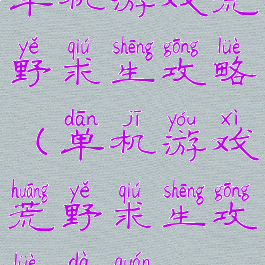 单机游戏荒
yě qiú shēng gōng lüè
野求生攻略
dān jī yóu xì
（单机游戏
huāng yě qiú shēng gōng
荒野求生攻
lüè dà quán